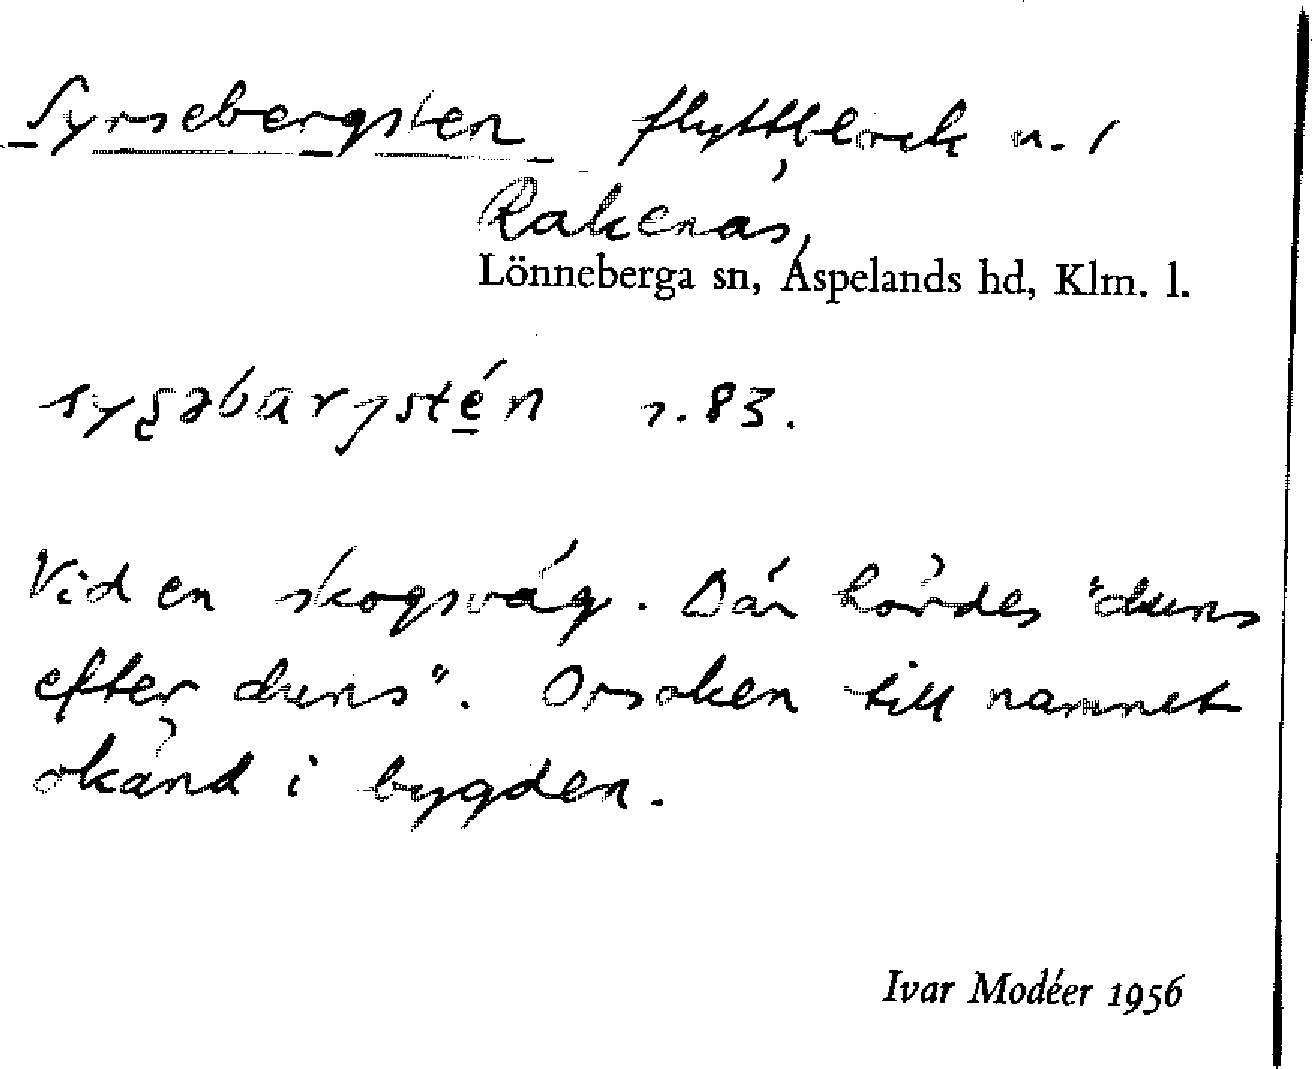 Syrsebergsten flyttblock n. /
Rakenäs,
Lönneberga sn, Aspelands hd, Klm. l.
syʂəbarjsté̱n r. 83.
Vid en skogsväg. Där hördes "duns
efter duns". Orsaken till namnet
okänd i bygden.
Ivar Modéer 1956